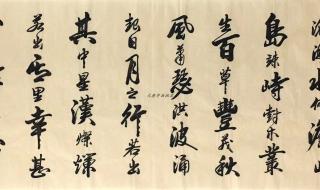 海水何澹
島竦峙樹木叢
生百草豐茂秋
風蕭瑟洪波涌
起日月之行若出
其中星漢燦爛
若出其里幸甚